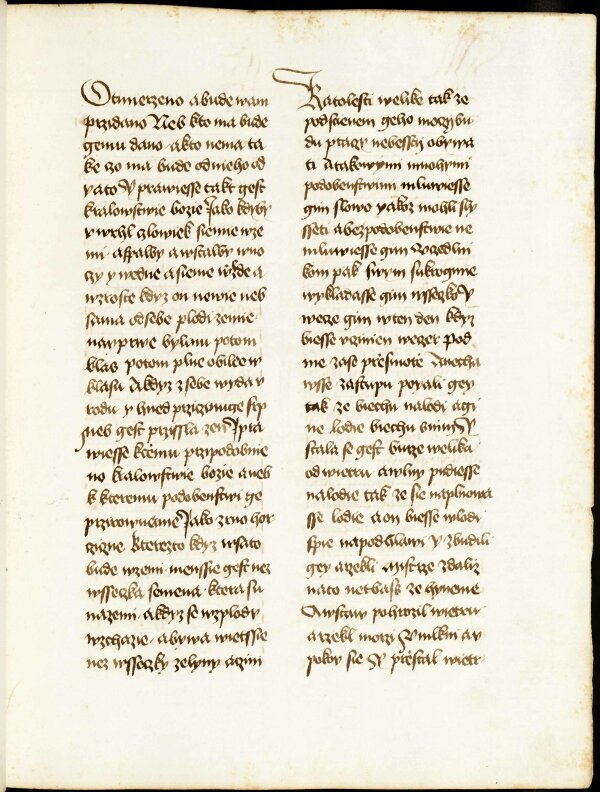 Otmierzeno abude wam
przidano Neb kto ma bude
gemu dano akto nema ta
ke czo ma bude odnieho od
yato Y prawiesse takt gest
kralowstwie bozie Jako kdyby
y wrhl czlowiek siemie wze
mi aspalby awstalby wno
czy y wedne asieme wzde a
wzroste kdyz on newie neb
sama odsebe plodi zemie
nayprwe bylinu potom
klas potom plne obilee w
klasu Akdyz zsebe wyda v
rodu y hned prziczinige srp
neb gest przissla zen Ipra
wiesse kczemu przipodobnie
no kralowstwie bozie aneb
k kteremu podobenstwi ge
przirownanie Jako zrno hor
czizne kterezto kdyz wsato
bude wzemi menssie gest nez
wsseczka semena ktera su
nazemi akdyz se wzplody
wzchazie abywa wietssie
nez wsseczky zelyny aczini
Ratolesti welike tak ze
podstienem geho moczy bu
du ptaczy nebessczy obywa
ti Atakowymi mnohymi
podobenstwimi mluwiesse
gim slowo yakoz mohli sly
sseti abezpodobenstwie ne
mluwiesse gim Uczedlni
kom pak swym sukromie
wykladasse gim wsseczko Y
wecze gim wten den kdyz
biesse vczinien weczer Pod
me zase przesmote Anecha
wsse zastupu poyali gey
tak ze biechu nalodi agi
ne lodie biechu snim Y
stala se gest burze welika
od wietru awlny pudiesse
nalodie tak ze sie naplniowa
sse lodie aon biesse wlodi
spie napodhlawi Y zbudili
gey arzekli Mistrze zdaliz
nato netbass ze hyneme
Awstaw pohrozil wietru
arzekl morzi Umlkni av
pokoy sie Y przestal wietr